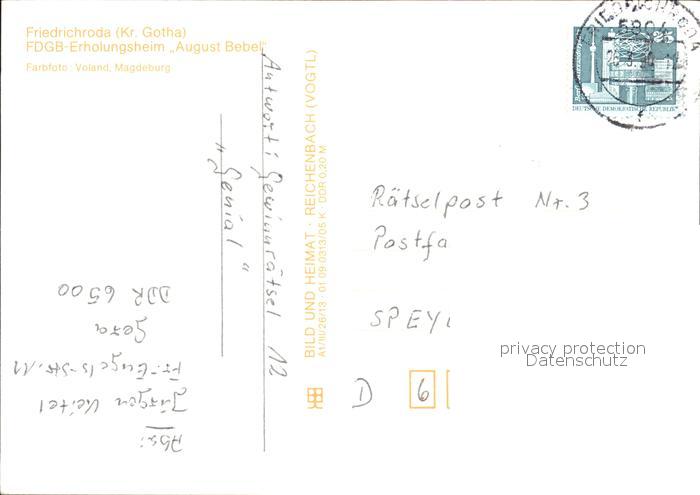 Friedrichroda (Kr. Gotha)
FDGB-Erholungsheim „August Bebel"
Farbfoto: Voland, Magdeburg
Antwort: Gewinnrätsel 12
„Genial“
Abs:
Jürgen Keitel
Fr.-Engels-Str. 11
Gera
DDR 6500
BILD UND HEIMAT · REICHENBACH (VOGTL)
A1/III/26/13 · 01 09 0313/05 K · DDR 0,20 M
25
DEUTSCHE DEMOKRATISCHE REPUBLIK
Rätselpost Nr. 3
Postfa
SPEY
D 6
privacy protection
Datenschutz